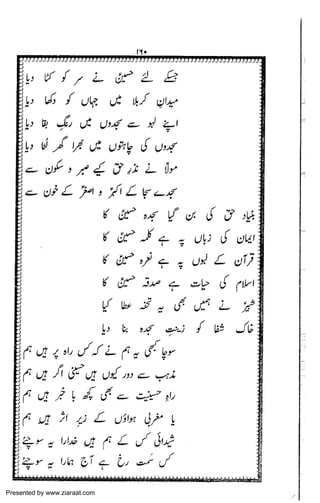 ۱۶۰
جسکے لئے حسینؑ نے سر کو کٹا دیا
میدانِ کربلا میں جہاں کو دکھا دیا
اپنے لہو سے سجدوں میں رنگِ بقا دیا
سجدوں کی چاہتوں میں بھرا گھر لٹا دیا
مولاؑ نے نذرِ حق کیے صبر و سکون سے
سجدے سجا کے اکبرؑ و اصغرؑ کے خون سے
بنیادِ حق کی بن گیا سجدہ حسینؑ کا
ایمان کی زباں پہ ہے کلمہ حسینؑ کا
قرآن کے لبوں پہ ہے نعرہ حسینؑ کا
اسلام کی حیات ہے صدقہ حسینؑ کا
شبیرؑ نے ہمیں بھی یہ تحفہ عطا کیا
خاکِ شفا کو زینتِ سجدہ بنا دیا
سوچا کبھی یہ ہم نے کہ کس راہ پر ہیں ہم
مذہب سے دور کیوں ہیں حسینی اگر ہیں ہم
راہِ حسینیت سے بھی کچھ با خبر ہیں ہم
یا مغربی ہواؤں کے زیرِ اثر ہیں ہم
شیدائی کس کے ہم ہیں خدارا یہ سوچئے
کس سمت رخ ہے آج ہمارا یہ سوچئے
Presented by www.ziaraat.com